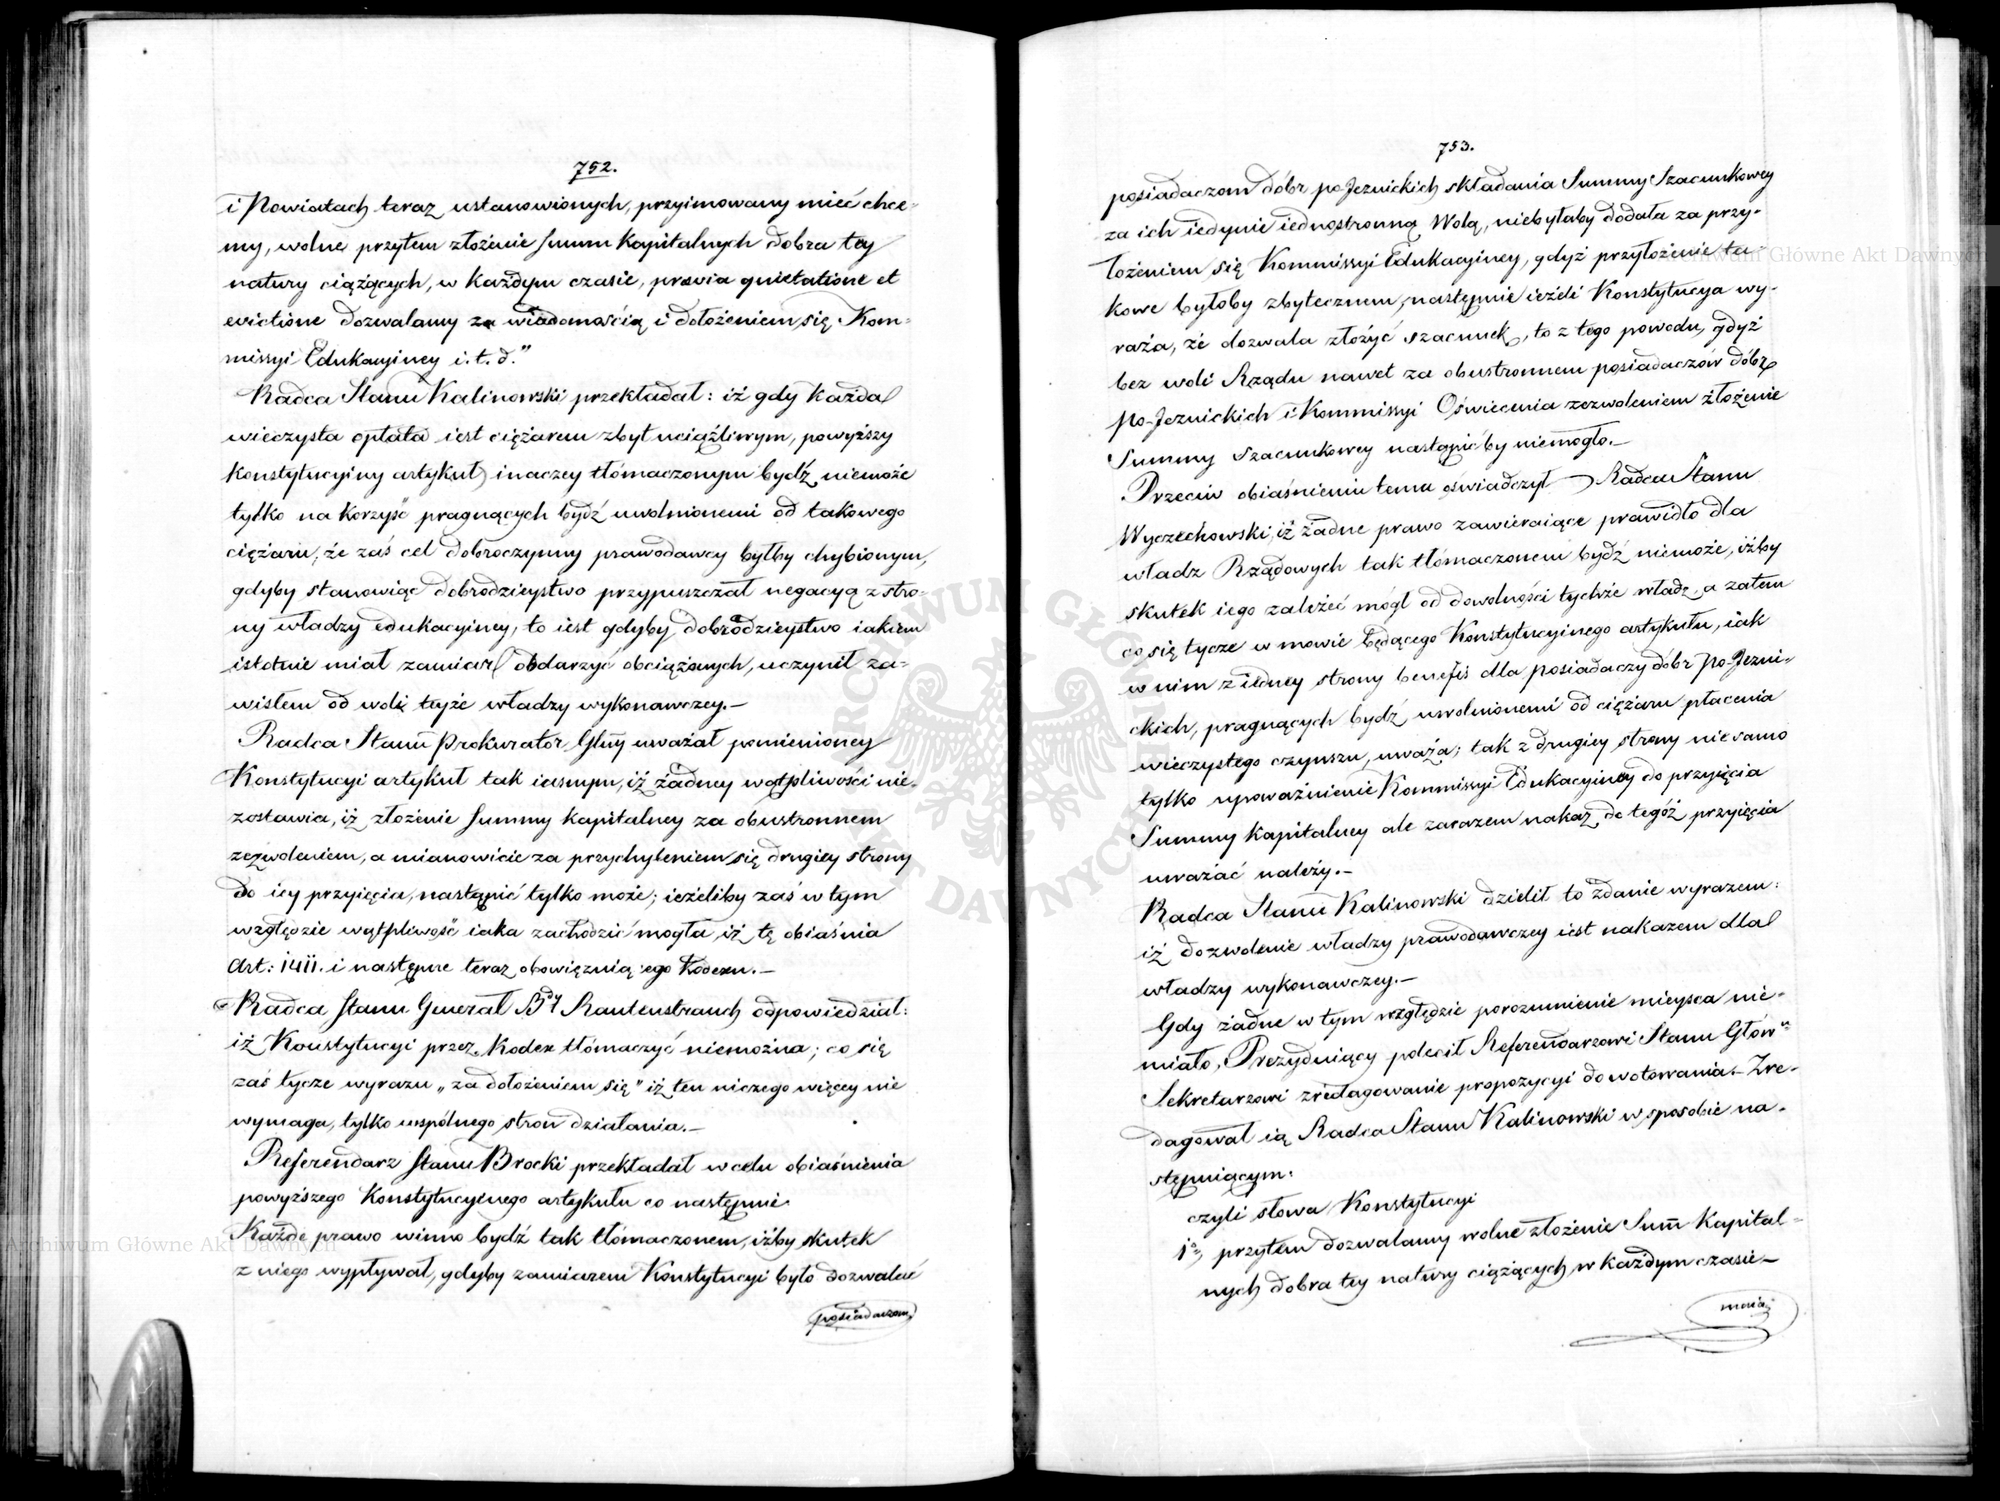 752.
i Powiatach teraz ustanowionych, przyimowany mieć chce-
my, wolne przytem złożenie summ kapitalnych dobra tey
natury ciążących, w każdym czasie, prævia quietatione et
evictione dozwalamy za wiadomością i dołożeniem się Kom-
missyi Edukacyiney i.t.d."
Radca Stanu Kalinowski przekładał: iż gdy każda
wieczysta opłata iest ciężarem zbyt uciążliwym, powyższy
konstytucyiny artykuł inaczey tłómaczonym bydź niemoże
tylko na korzyść pragnących bydź uwolnionemi od takowego
ciężaru, że zaś cel dobroczynny prawodawcy byłby chybionym,
gdyby stanowiąc dobrodzieystwo przypuszczał negacyą z stro-
ny władzy edukacyiney, to iest gdyby dobrodzieystwo iakiem
istotnie miał zamiar obdarzyć obciążonych, uczynił za-
wisłem od woli teyże władzy wykonawczey.—
Radca Stanu Prokurator Glny uważał pomienioney
Konstytucyi artykuł tak iasnym, iż żadney wątpliwości nie-
zostawia, iż złożenie summy kapitalney za obustronnem
zezwoleniem, a mianowicie za przychyleniem się drugiey strony
do iey przyięcia, nastąpić tylko może; ieżeliby zaś w tym
względzie wątpliwość iaka zachodzić mogła, iż tę obiaśnia
Art: 1411. i następne teraz obowięzuiącego Kodexu.—
Radca Stanu Generał Bdy Rautenstrauch odpowiedział:
iż Konstytucyi przez Kodex tłómaczyć niemożna; co się
zaś tycze wyrazu „za dołożeniem się" iż ten niczego więcey nie
wymaga, tylko wspólnego stron działania.—
Referendarz Stanu Brocki przekładał w celu obiaśnienia
powyższego Konstytucyinego artykułu co następnie.
Każde prawo winno bydź tak tłómaczonem, iżby skutek
z niego wypływał, gdyby zamiarem Konstytucyi było dozwalać
posiadaczom
753.
posiadaczom dóbr po-Jeznickich składania Summy Szacunkowey
za ich iedynie iednostronną Wolą, niebyłaby dodała za przy-
łożeniem się Kommissyi Edukacyiney, gdyż przyłożenie ta-
kowe byłoby zbytecznem, następnie ieżeli Konstytucya wy-
raża, że dozwala złożyć szacunek, to z tego powodu, gdyż
bez woli Rządu nawet za obustronnem posiadaczów dóbr
po-Jeznickich i Kommissyi Oświecenia zezwoleniem złożenie
Summy szacunkowey nastąpić by niemogło.—
Przeciw obiaśnieniu temu oświadczył Radca Stanu
Wyczechowski, iż żadne prawo zawieraiące prawidło dla
władz Rządowych tak tłómaczonem bydź niemoże, iżby
skutek iego zależeć mógł od dowolności tychże władz, a zatem
co się tycze w mowie będącego Konstytucyinego artykułu, iak
w nim z iedney strony benefis dla posiadaczy dóbr po-Jezni-
ckich, pragnących bydź uwolnionemi od ciężaru płacenia
wieczystego czynszu, uważa; tak z drugiey strony nie samo
tylko upoważnienie Kommissyi Edukacyiney do przyięcia
Summy kapitalney ale zarazem nakaz do tegóż przyięcia
uważać należy.—
Radca Stanu Kalinowski dzielił to zdanie wyrazem:
iż dozwolenie władzy prawodawczey iest nakazem dla
władzy wykonawczey.—
Gdy żadne w tym względzie porozumienie mieysca nie-
miało, Prezyduiący polecił Referendarzowi Stanu Głów:
Sekretarzowi zredagowanie propozycyi do wotowania.— Zre-
dagował ią Radca Stanu Kalinowski w sposobie na-
stępuiącym:
czyli słowa Konstytucyi
1o, przytem dozwalamy wolne złożenie Summ Kapital-
nych dobra tey natury ciążących w każdym czasie—
maią
Archiwum Główne Akt Dawnych